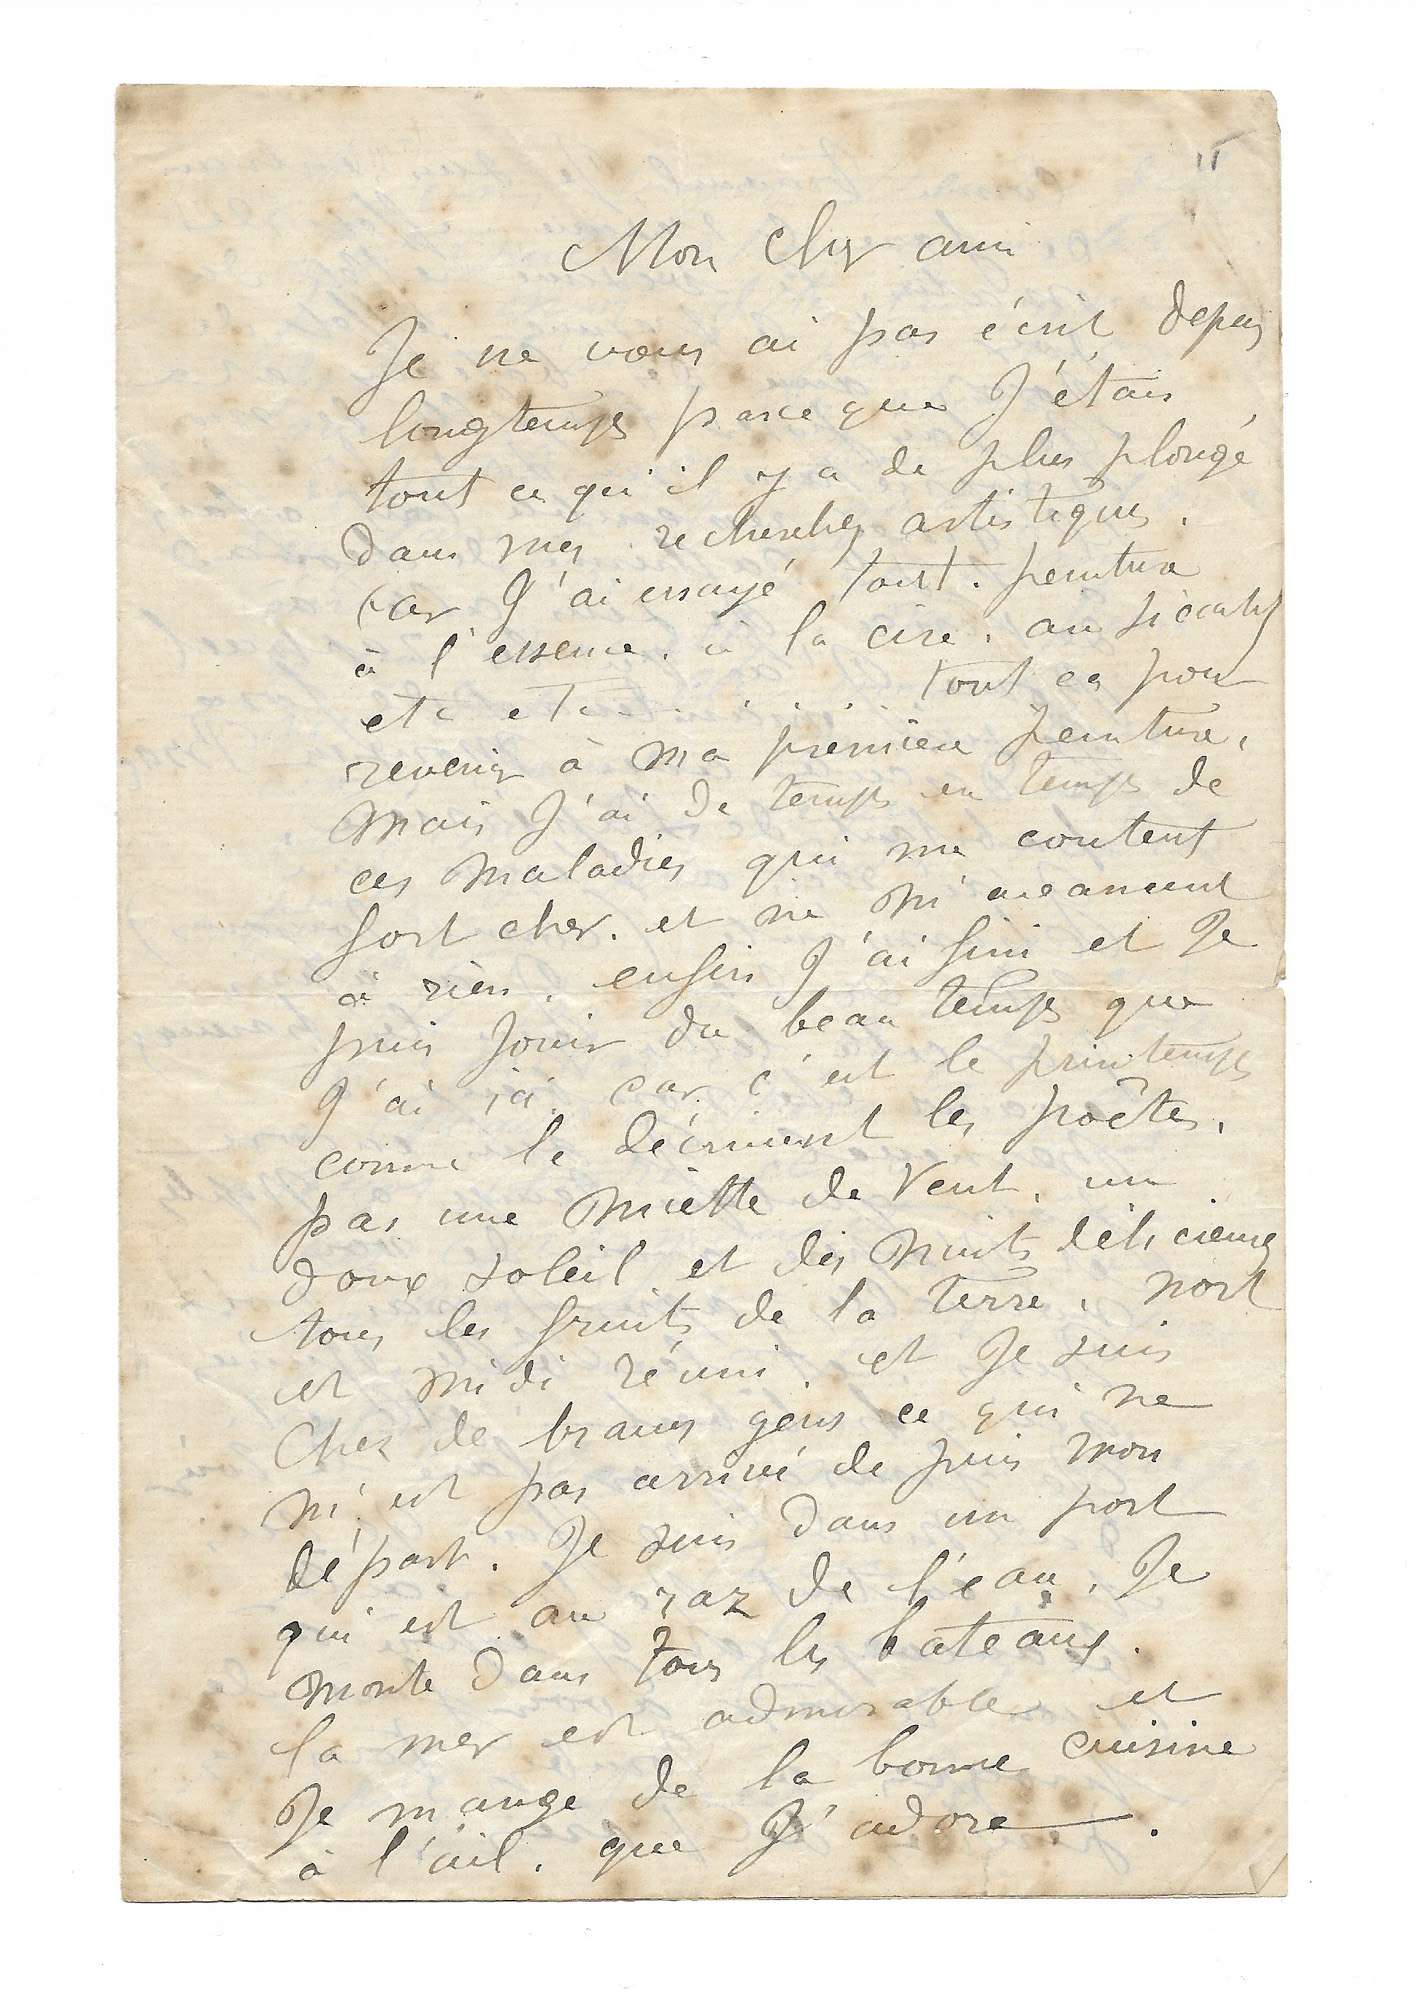 Mon cher ami
Je ne vous ai pas écrit depuis
longtemps parce que J'étais
tout ce qu'il y a de plus plongé
dans mes recherches artistiques.
Car J'ai essayé tout. peinture
à l'essence. à la cire. au siccatif
etc etc ..... tout ça pour
revenir à ma première peinture.
Mais J'ai de temps en temps de
ces maladies qui me coutent
fort cher. et ne m'avancent
à rien. enfin J'ai fini et Je
puis Jouir du beau temps que
J'ai ici. car c'est le printemps
comme le décrivent les poêtes.
pas une miette de vent. un
doux soleil et des nuits délicieuses
tous les fruits de la terre. nort
et midi réuni. et Je suis
Chez de braves gens ce qui ne
m'est pas arrivé de puis mon
départ. Je suis dans un port
qui est au raz de l'eau. Je
monte dans tous les bateaux.
la mer est admirable et
Je mange de la bonne cuisine
à l'ail. que J'adore.